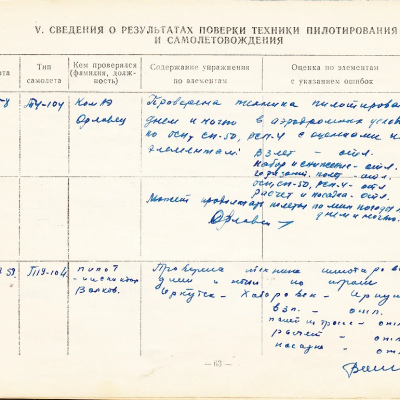 V. СВЕДЕНИЯ О РЕЗУЛЬТАТАХ ПОВЕРКИ ТЕХНИКИ ПИЛОТИРОВАНИЯ
И САМОЛЕТОВОЖДЕНИЯ
ата
Тип самолета
Кем проверялся (фамилия, должность)
Содержание упражнения по элементам
Оценка по элементам с указанием ошибок
Ту-104
Ком
Орловец
Проверена техника пилотирован
днем и ночью в аэродромных услов
по ОСП, СП-50, РСП-4 с оценками
элементам:
Взлет - отл.
Набор и снижение - отл.
полет - отл.
ОСП, СП-50, РСП-4 - отл
Расчет и посадка - отл.
Может производить полеты по мин. погоды
днем и ночью.
Ту-104
пилот
- инспектор
Волков.
Проверена техника пилотиров
днем и ночью по трассе
Иркутск - Хабаровск - Ирку
Взл. - отл.
полет по трассе - отл
расчет - отл
посадка - отл
— 63 —